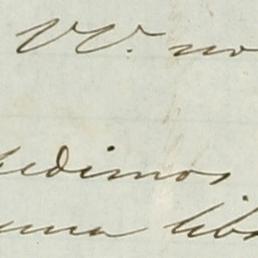 VV. no
pedimos
una lib